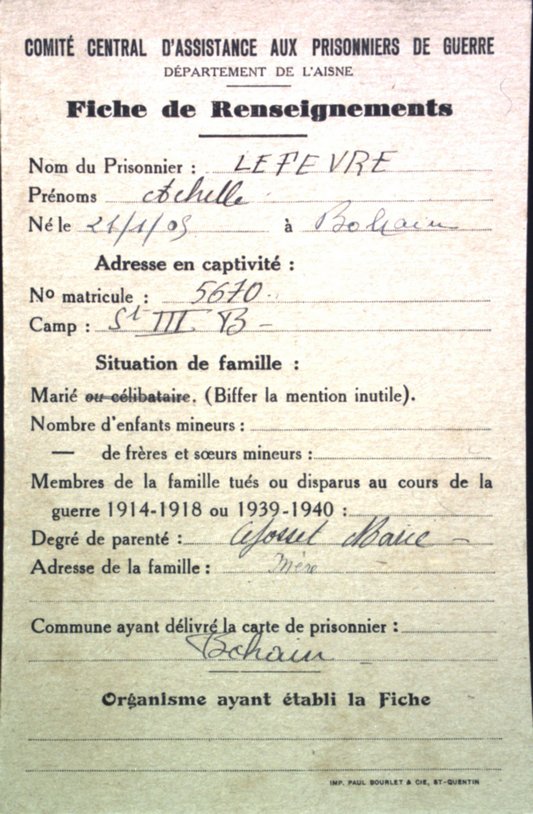 COMITÉ CENTRAL D'ASSISTANCE AUX PRISONNIERS DE GUERRE
DÉPARTEMENT DE L'AISNE
Fiche de Renseignements
Nom du Prisonnier : LEFEVRE
Prénoms Achille
Né le 21/1/03 à Bohain
Adresse en captivité :
No matricule : 5670
Camp : St III B –
Situation de famille :
Marié ou célibataire. (Biffer la mention inutile).
Nombre d'enfants mineurs :
— de frères et sœurs mineurs :
Membres de la famille tués ou disparus au cours de la
guerre 1914-1918 ou 1939-1940 :
Degré de parenté : Marie –
Adresse de la famille : Mère –
Commune ayant délivré la carte de prisonnier :
Bohain –
Organisme ayant établi la Fiche
IMP. PAUL BOURLET & CIE, ST-QUENTIN